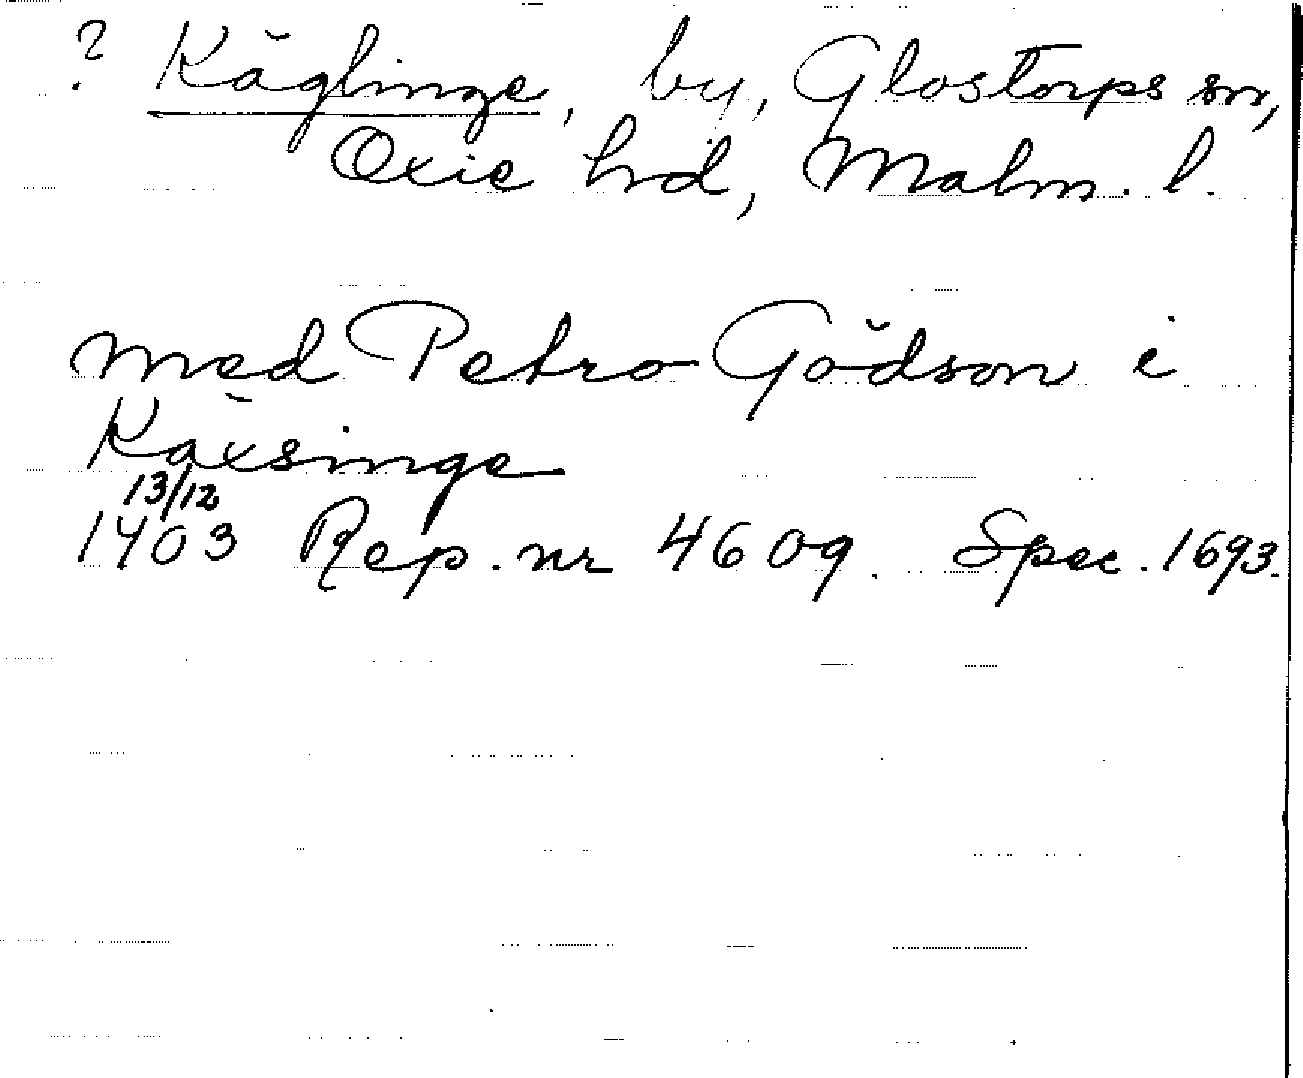 ? Käglinge, by, Glostorps sn,
Oxie hd, Malm. l.
med Petro Gödson i
Käxsinge
13/12
1403 Rep. nr 4609. Spec. 1693.